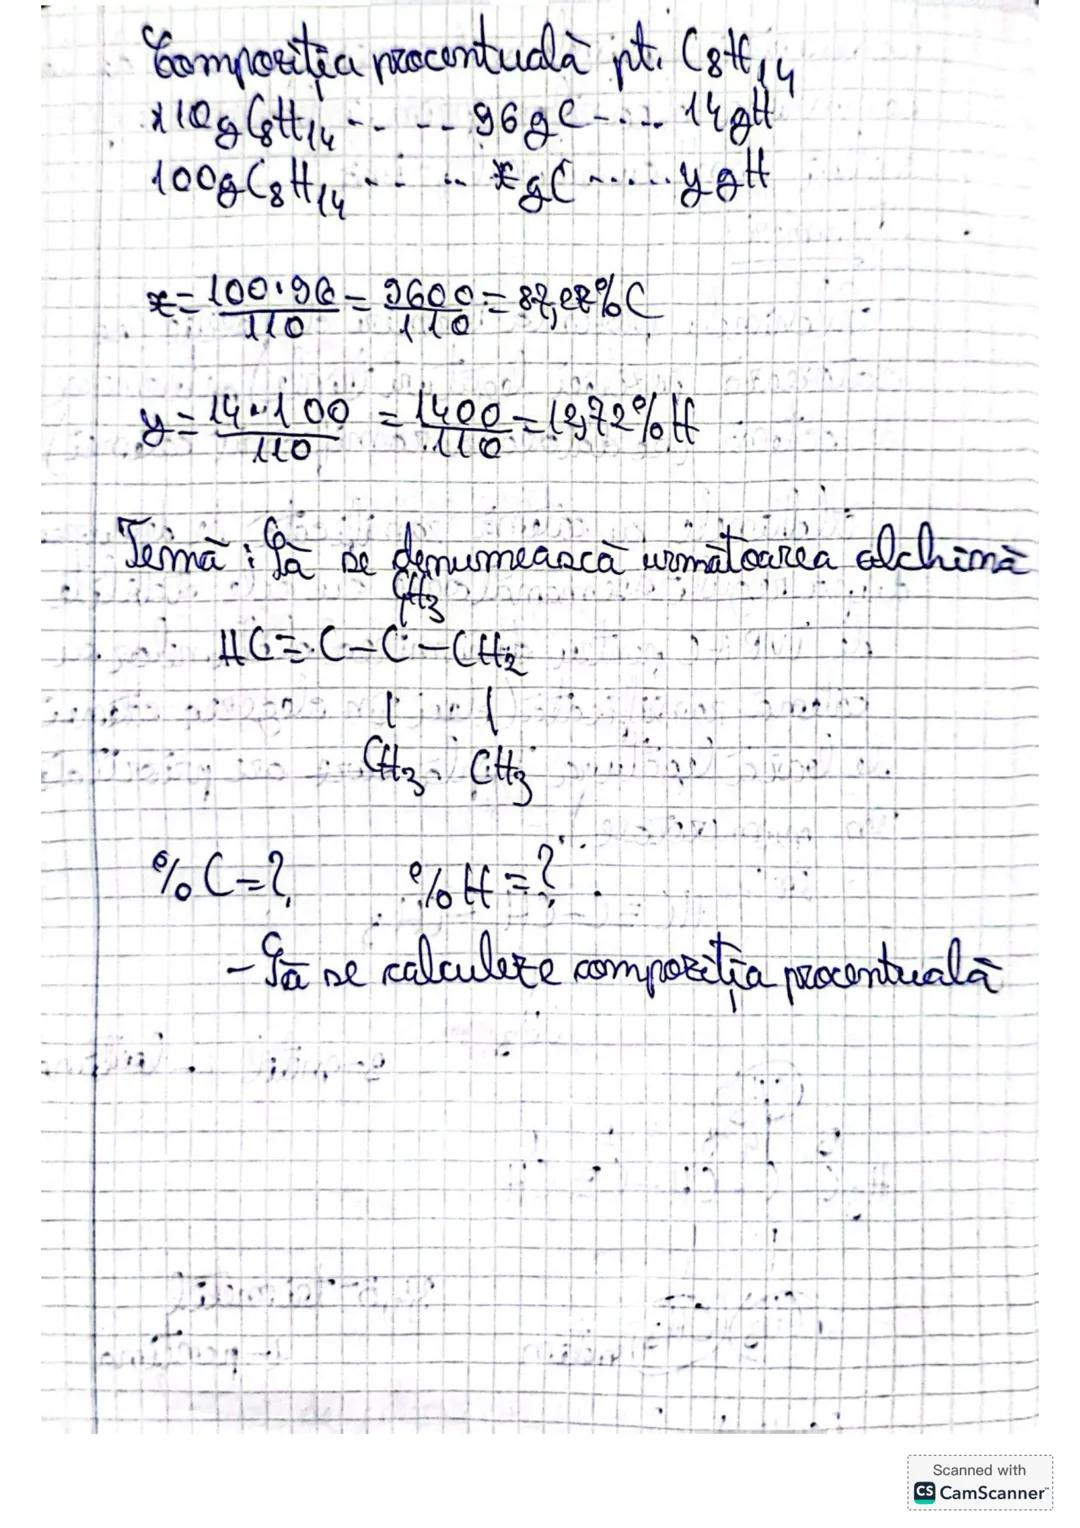 Compoziția procentuală pt. C8H14
110g C8H14 -- -- 96gC -... 14gH
100g C8H14 -- .. xgC ...... ygH
x = 100·96/110 = 9600/110 = 87,27%C
y = 14·100/110 = 1400/110 = 12,72%H
Temă: Să se denumească următoarea alchină
CH3
HC≡C-C-CH2
CH3 CH3
%C=? %H=?
- Să se calculeze compoziția procentuală
Scanned with
CS CamScanner